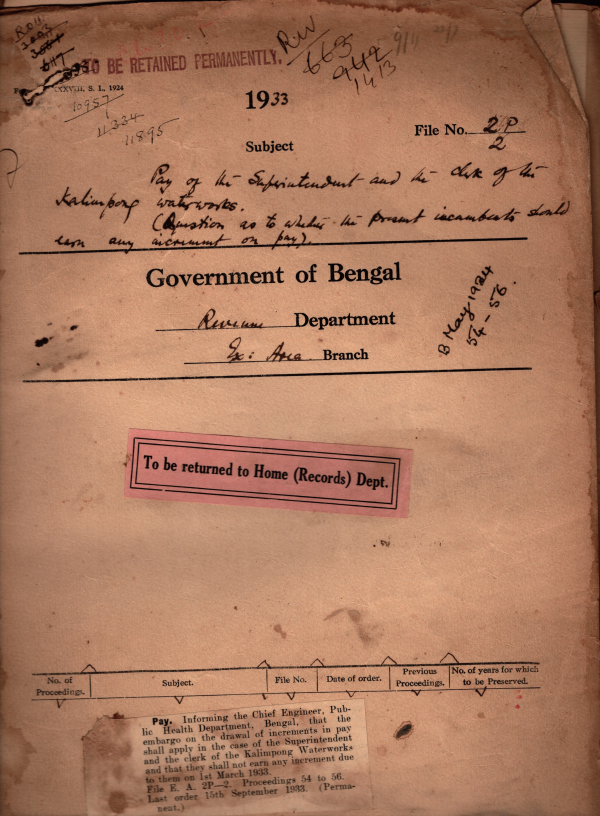 TO BE RETAINED PERMANENTLY.
XXVIII, S. L., 1924
10957
4334
11895
665
942
1413
1933
File No. 2P
2
Subject
Pay of the Superintendent and the clerk of the
Kalimpong waterworks.
(Question as to whether the present incumbents should
earn any increment on pay).
Government of Bengal
Revenue Department
Ex: Area Branch
B May 1934
54-56.
To be returned to Home (Records) Dept.
No. of Proceedings. Subject. File No. Date of order. Previous Proceedings. No. of years for which to be Preserved.
Pay. Informing the Chief Engineer, Pub-
lic Health Department, Bengal, that the
embargo on the drawal of increments in pay
shall apply in the case of the Superintendent
and the clerk of the Kalimpong Waterworks
and that they shall not earn any increment due
to them on 1st March 1933.
File E. A. 2P—2. Proceedings 54 to 56.
Last order 15th September 1933. (Perma-
nent.)